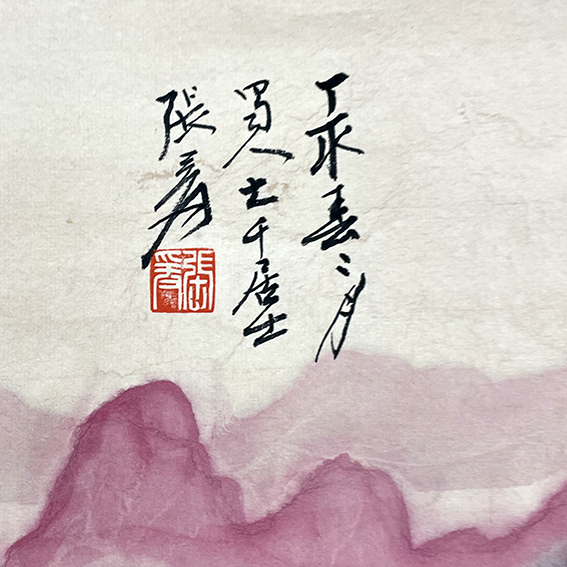 丁亥春二月
蜀人大千居士
張爰
張爰